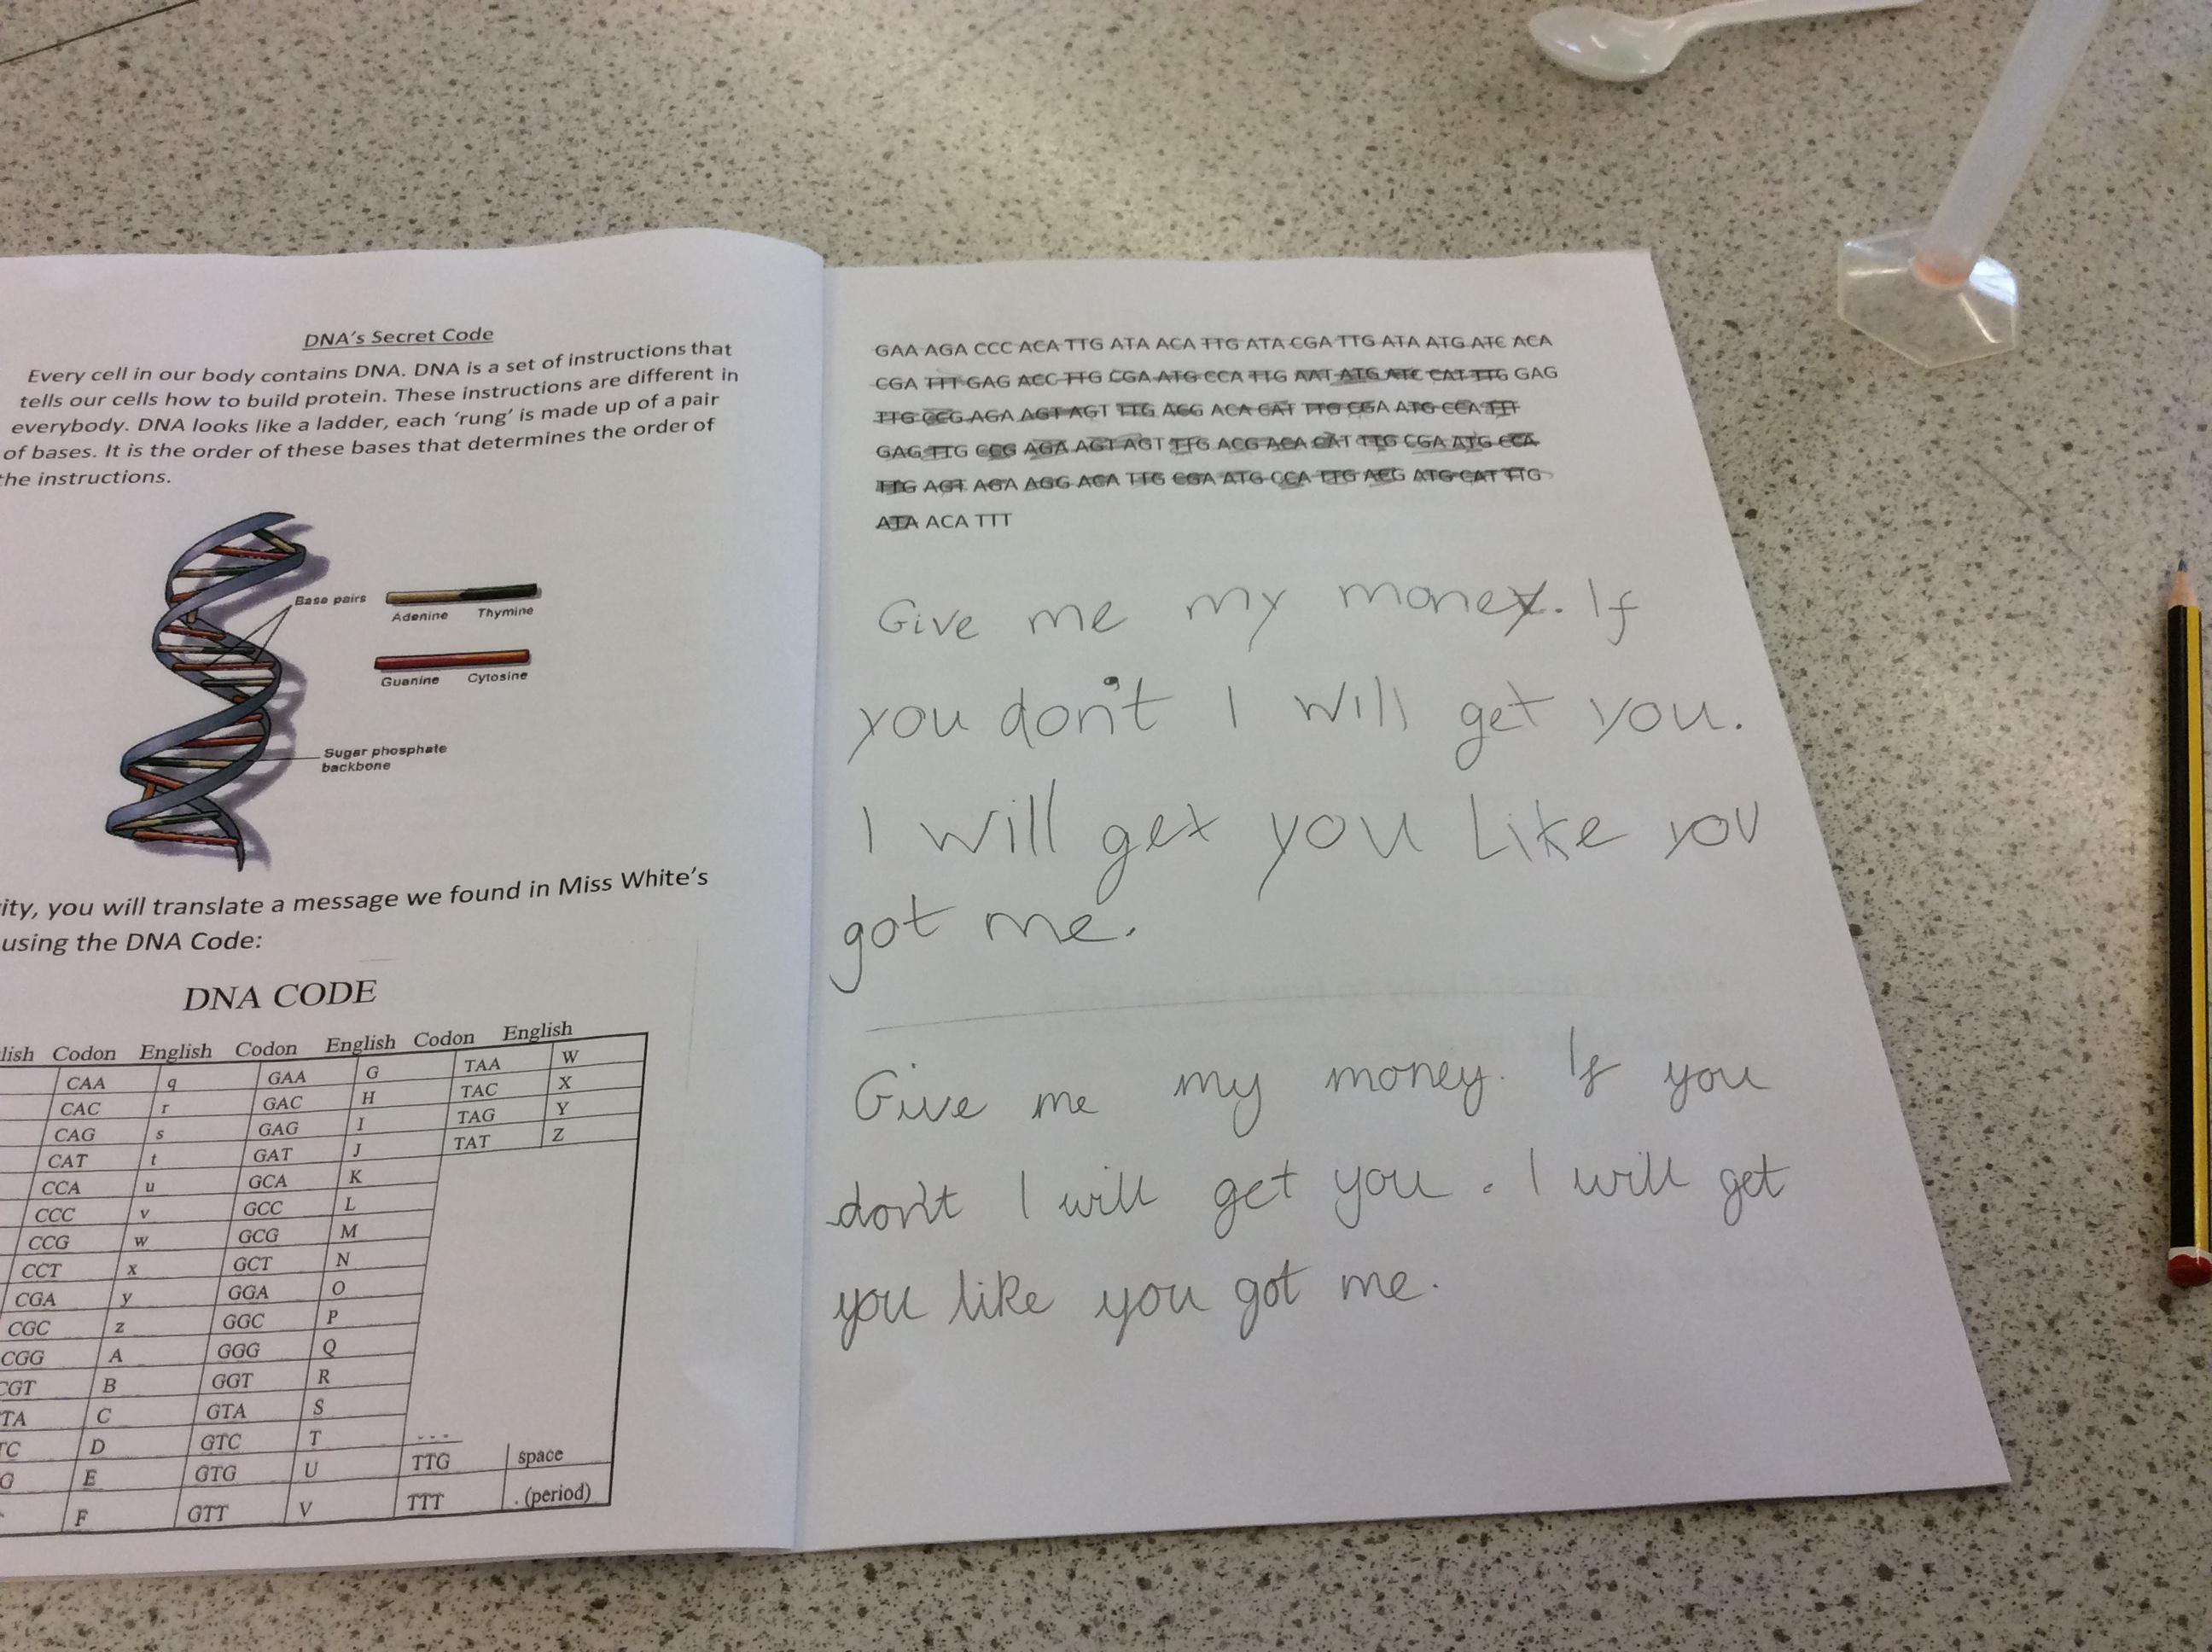 DNA's Secret Code
Every cell in our body contains DNA. DNA is a set of instructions that
tells our cells how to build protein. These instructions are different in
everybody. DNA looks like a ladder, each 'rung' is made up of a pair
of bases. It is the order of these bases that determines the order of
the instructions.
Base pairs
Adenine Thymine
Guanine Cytosine
Sugar phosphate
backbone
you will translate a message we found in Miss White's
using the DNA Code:
DNA CODE
Codon English Codon English Codon English
CAA q GAA G TAA W
CAC r GAC H TAC X
CAG s GAG I TAG Y
CAT t GAT J TAT Z
CCA u GCA K
CCC v GCC L
CCG w GCG M
CCT x GCT N
CGA y GGA O
CGC z GGC P
CGG A GGG Q
CGT B GGT R
TA C GTA S
TC D GTC T ---
G E GTG U TTG space
F GTT V TTT . (period)
GAA AGA CCC ACA TTG ATA ACA TTG ATA CGA TTG ATA ATG ATC ACA
CGA TTT GAG ACC TTG CGA ATG CCA TTG AAT ATG ATC CAT TTG GAG
TTG CCG AGA AGT AGT TTG ACG ACA CAT TTG CGA ATG CCA TTT
GAG TTG CCG AGA AGT AGT TTG ACG ACA CAT TTG CGA ATG CCA
TTG AGT AGA AGG ACA TTG CGA ATG CCA TTG ACG ATG CAT TTG
ATA ACA TTT
Give me my money. If
you don't I will get you.
I will get you Like you
got me.
Give me my money. If you
don't I will get you. I will get
you like you got me.